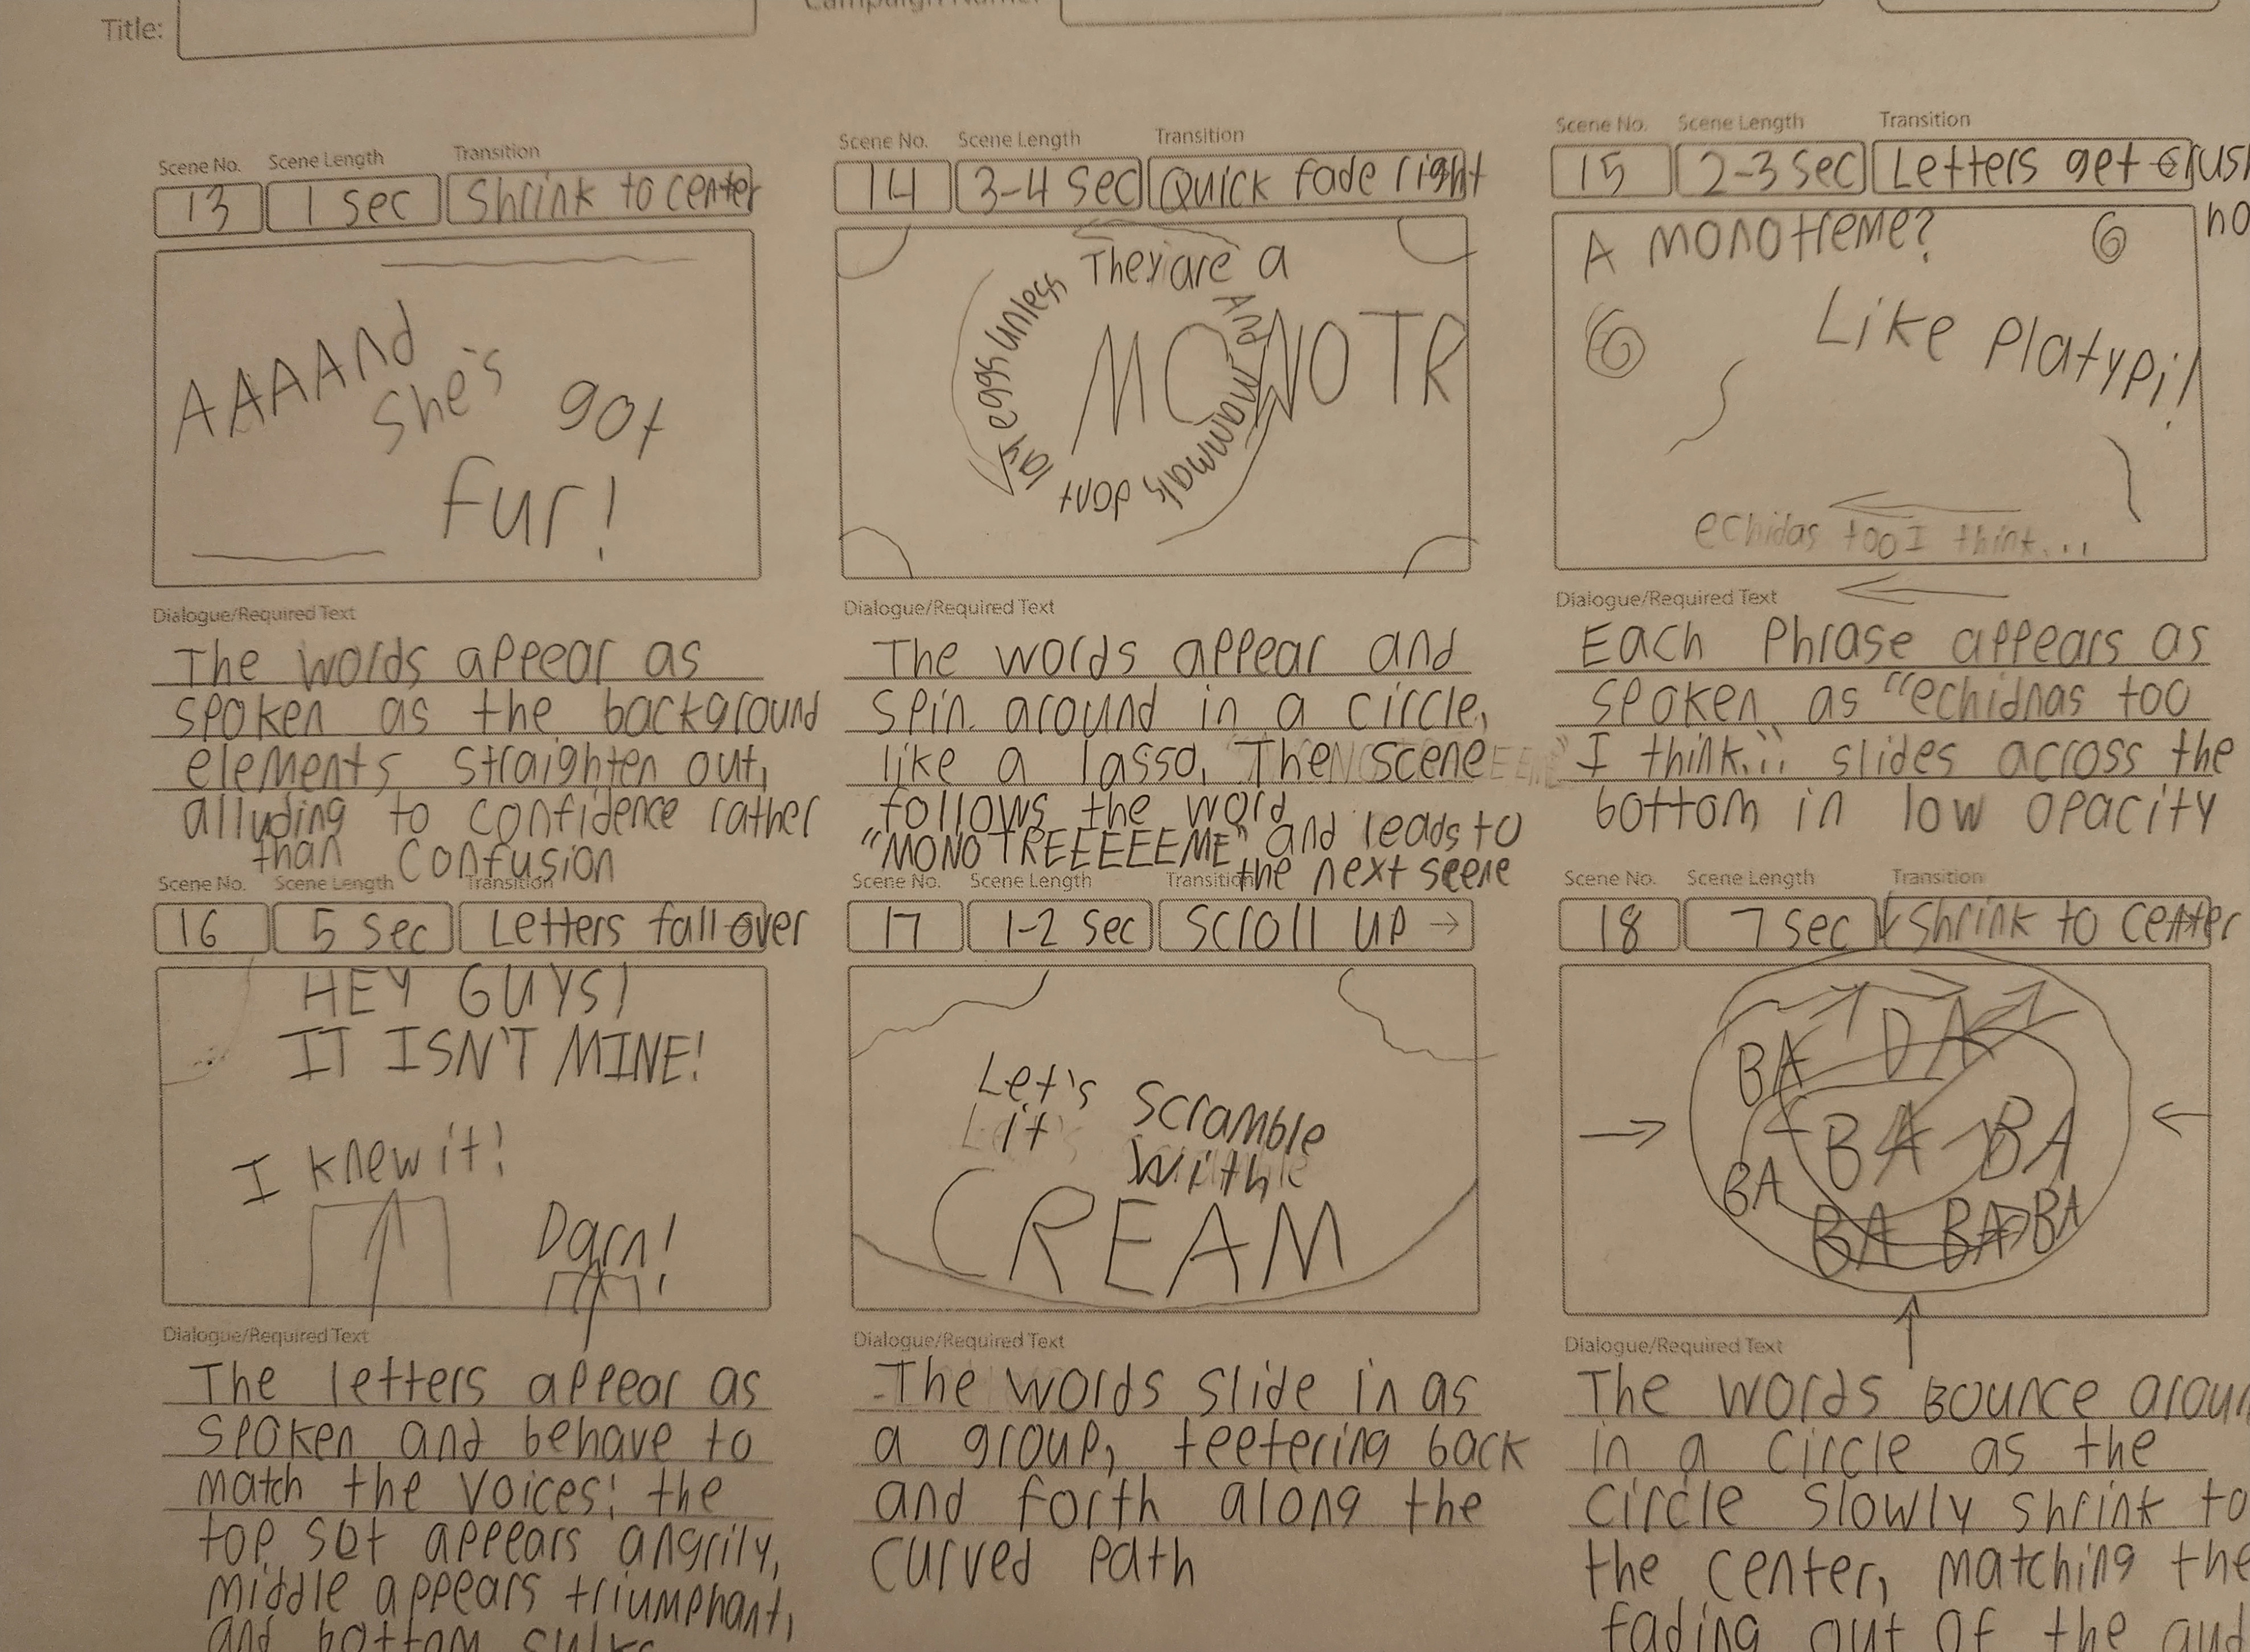 Title:
Scene No. Scene Length Transition
13 1 sec Shrink to center
AAAAnd
she's got
fur!
Dialogue/Required Text
The words appear as
spoken as the background
elements straighten out,
alluding to confidence rather
than confusion
Scene No. Scene Length Transition
14 3-4 sec Quick fade right
They are a
And mammals dont lay eggs unless
MONOTR
Dialogue/Required Text
The words appear and
spin around in a circle,
like a lasso. The scene
follows the word
"MONOTREEEEEME" and leads to
the next scene
Scene No. Scene Length Transition
15 2-3 sec Letters get
A monotreme?
Like Platypi!
echidas too I think...
Dialogue/Required Text
Each Phrase appears as
spoken as "echidnas too
I think..." slides across the
bottom in low opacity
Scene No. Scene Length Transition
16 5 sec Letters fall over
HEY GUYS!
IT ISN'T MINE!
I knew it!
Darn!
Dialogue/Required Text
The letters appear as
spoken and behave to
match the voices; the
top set appears angrily,
middle appears triumphant,
and bottom
Scene No. Scene Length Transition
17 1-2 sec Scroll up →
Let's scramble
it with
CREAM
Dialogue/Required Text
The words slide in as
a group, teetering back
and forth along the
curved path
Scene No. Scene Length Transition
18 7 sec Shrink to center
BA DA
BA BA
BA
BA BA BA
Dialogue/Required Text
The words Bounce
in a circle as the
circle slowly shrink to
the center, matching the
fading out of the